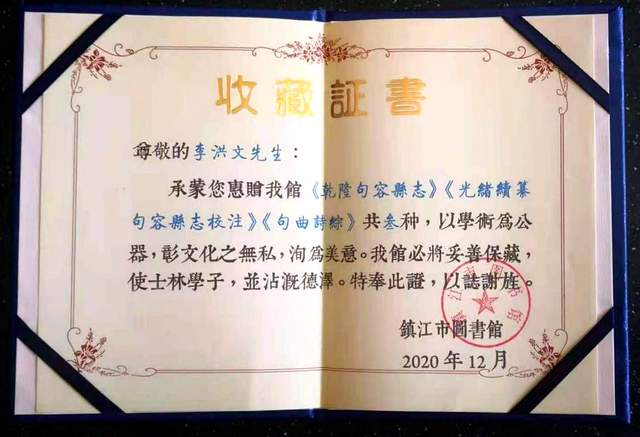 收藏証書
尊敬的李洪文先生：
承蒙您惠贈我館《乾隆句容縣志》《光緒續纂
句容縣志校注》《句曲詩綜》共叁种，以學術爲公
器，彰文化之無私，洵爲美意。我館必將妥善保藏，
使士林學子，並沾溉德澤。特奉此證，以誌謝旌。
鎮江市圖書館
鎮江市圖書館
2020年12月